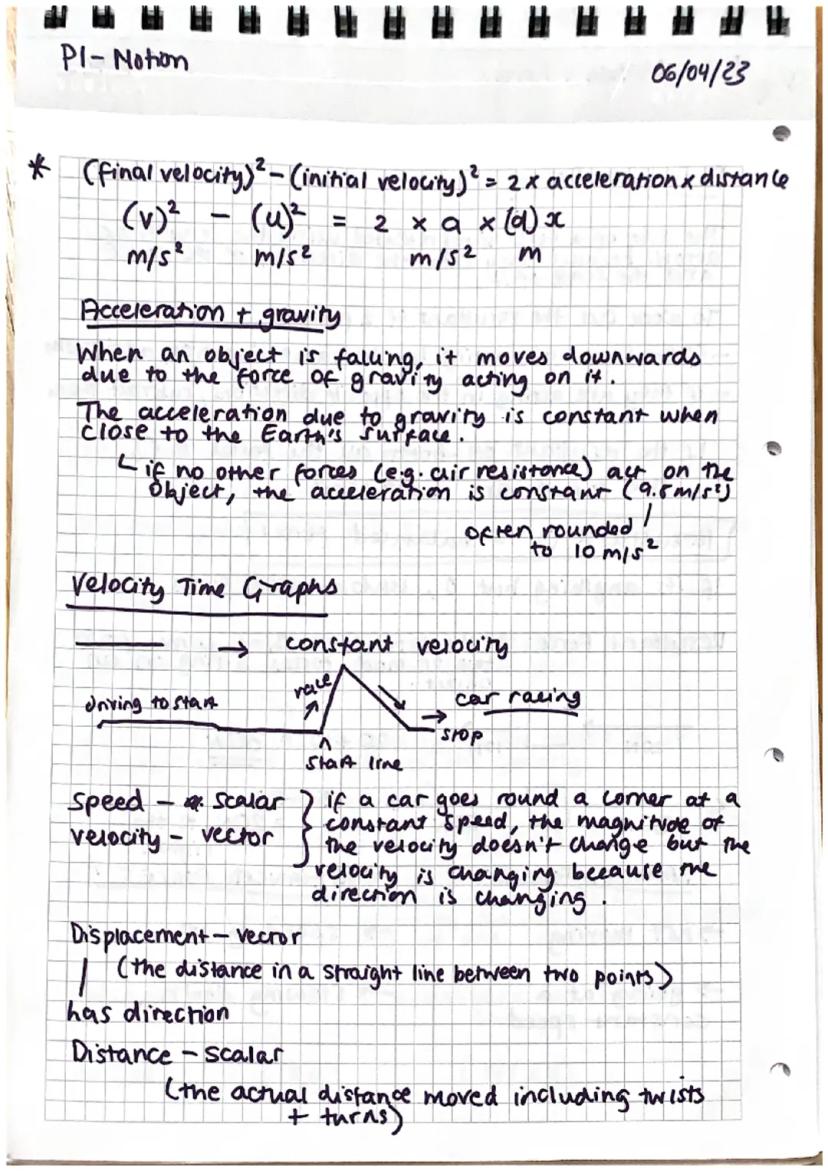 P1 - Motion
06/04/23
* (final velocity)² - (initial velocity)² = 2 x acceleration x distance
(v)² - (u)² = 2 x a x (d) x
m/s² m/s² m/s² m
Acceleration + gravity
When an object is falling, it moves downwards
due to the force of gravity acting on it.
The acceleration due to gravity is constant when
close to the Earth's surface.
if no other forces (e.g. air resistance) act on the
object, the acceleration is constant (9.8m/s²)
often rounded
to 10 m/s²
Velocity Time Graphs
→ constant velocity
driving to start
race
→ car racing
stop
start line
Speed - scalar } if a car goes round a corner at a
velocity - vector constant speed, the magnitude of
the velocity doesn't change but the
velocity is changing because the
direction is changing.
Displacement - vector
(the distance in a straight line between two points)
has direction
Distance - scalar
(the actual distance moved including twists
+ turns)